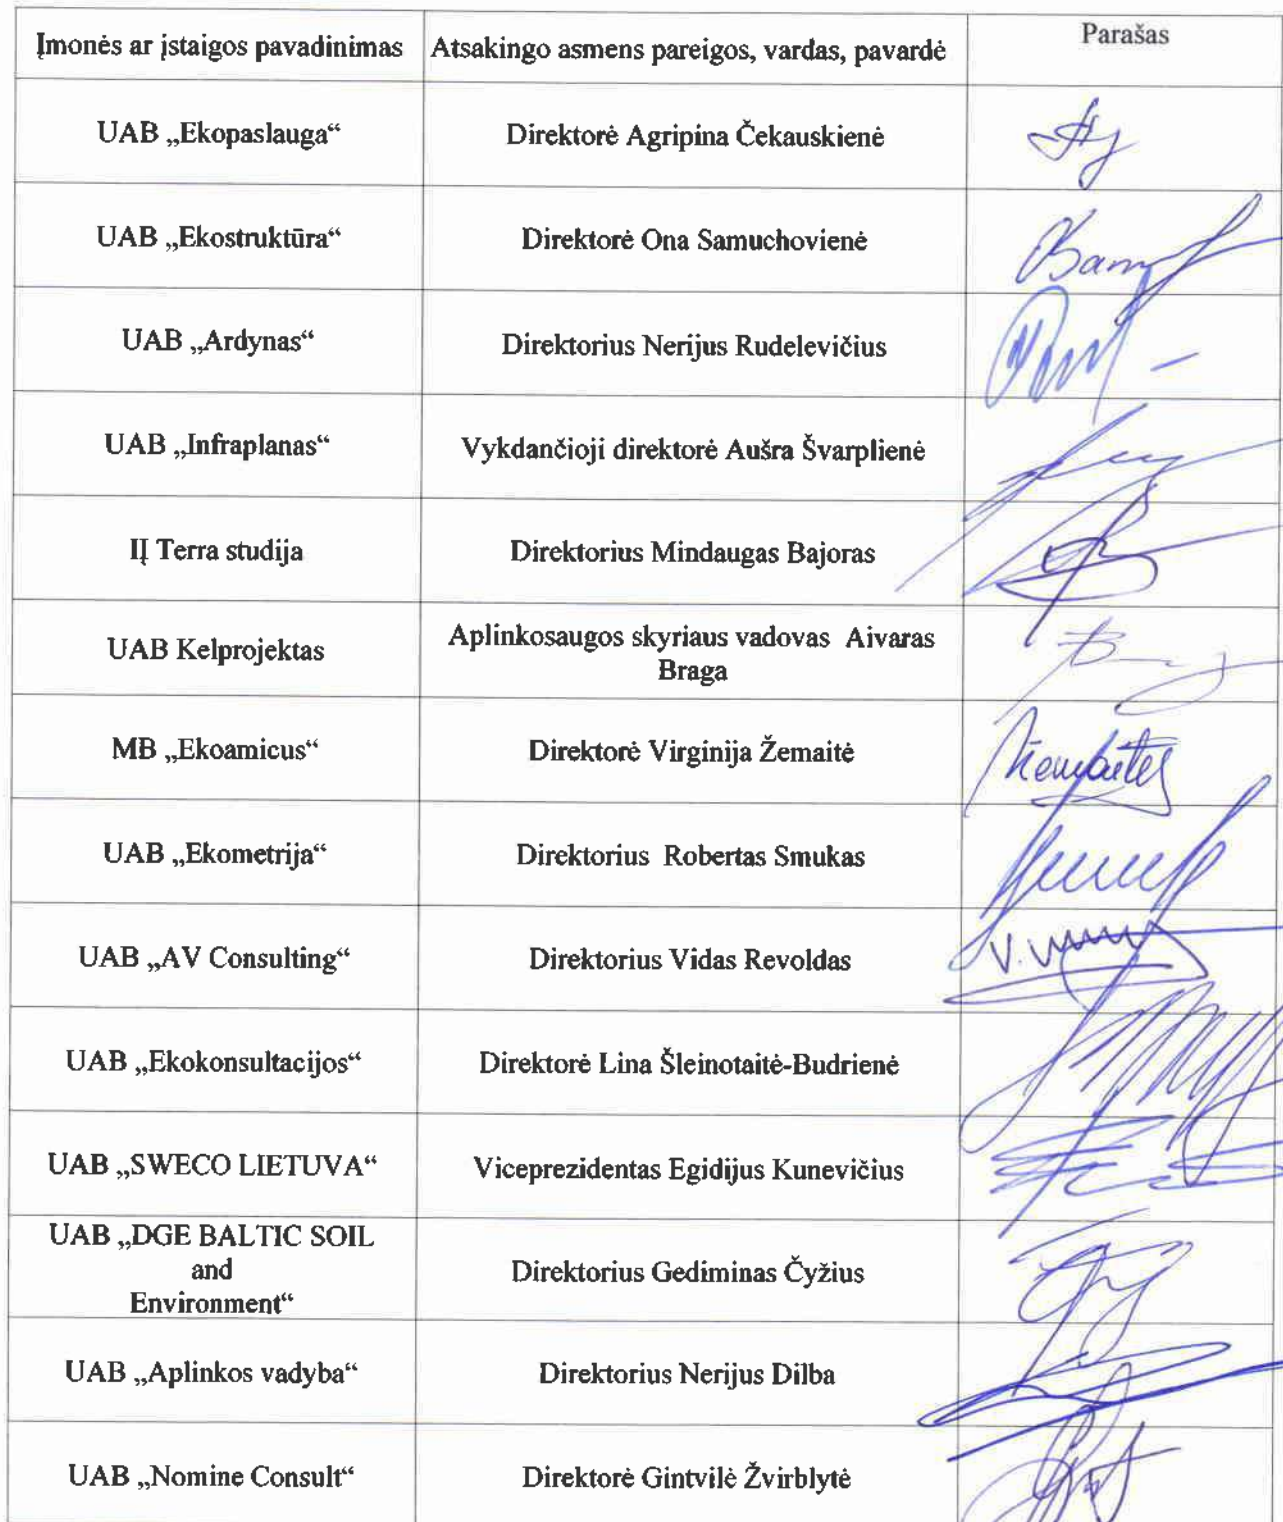 Įmonės ar įstaigos pavadinimas Atsakingo asmens pareigos, vardas, pavardė Parašas
UAB „Ekopaslauga“ Direktorė Agripina Čekauskienė
UAB „Ekostruktūra“ Direktorė Ona Samuchovienė
UAB „Ardynas“ Direktorius Nerijus Rudelevičius
UAB „Infraplanas“ Vykdančioji direktorė Aušra Švarplienė
IĮ Terra studija Direktorius Mindaugas Bajoras
UAB Kelprojektas Aplinkosaugos skyriaus vadovas Aivaras
Braga
MB „Ekoamicus“ Direktorė Virginija Žemaitė
UAB „Ekometrija“ Direktorius Robertas Smukas
UAB „AV Consulting“ Direktorius Vidas Revoldas
UAB „Ekokonsultacijos“ Direktorė Lina Šleinotaitė-Budrienė
UAB „SWECO LIETUVA“ Viceprezidentas Egidijus Kunevičius
UAB „DGE BALTIC SOIL
and
Environment“ Direktorius Gediminas Čyžius
UAB „Aplinkos vadyba“ Direktorius Nerijus Dilba
UAB „Nomine Consult“ Direktorė Gintvilė Žvirblytė